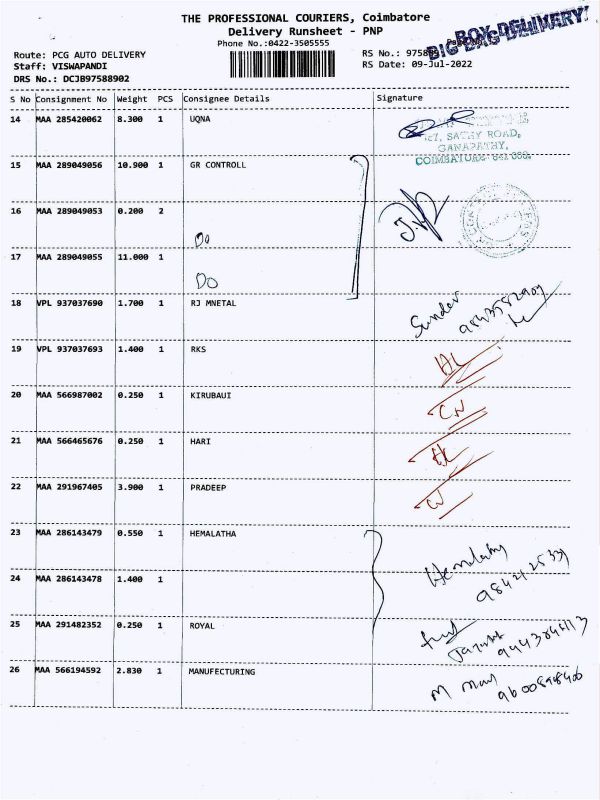 THE PROFESSIONAL COURIERS, Coimbatore
Delivery Runsheet - PNP
Phone No.:0422-3505555
BOX DELIVERY
BIG BAG DELIVERY
Route: PCG AUTO DELIVERY
Staff: VISWAPANDI
DRS No.: DCJB97588902
RS No.:
RS Date: 09-Jul-2022
S No Consignment No Weight PCS Consignee Details Signature
14 MAA 285420062 8.300 1 UQNA
SATHY ROAD,
GANAPATHY,
15 MAA 289049056 10.900 1 GR CONTROLL
16 MAA 289049053 0.200 2
Do
17 MAA 289049055 11.000 1
Do
18 VPL 937037690 1.700 1 RJ MNETAL Sundar
19 VPL 937037693 1.400 1 RKS
20 MAA 566987002 0.250 1 KIRUBAUI
21 MAA 566465676 0.250 1 HARI
22 MAA 291967405 3.900 1 PRADEEP
23 MAA 286143479 0.550 1 HEMALATHA
24 MAA 286143478 1.400 1
25 MAA 291482352 0.250 1 ROYAL
26 MAA 566194592 2.830 1 MANUFECTURING